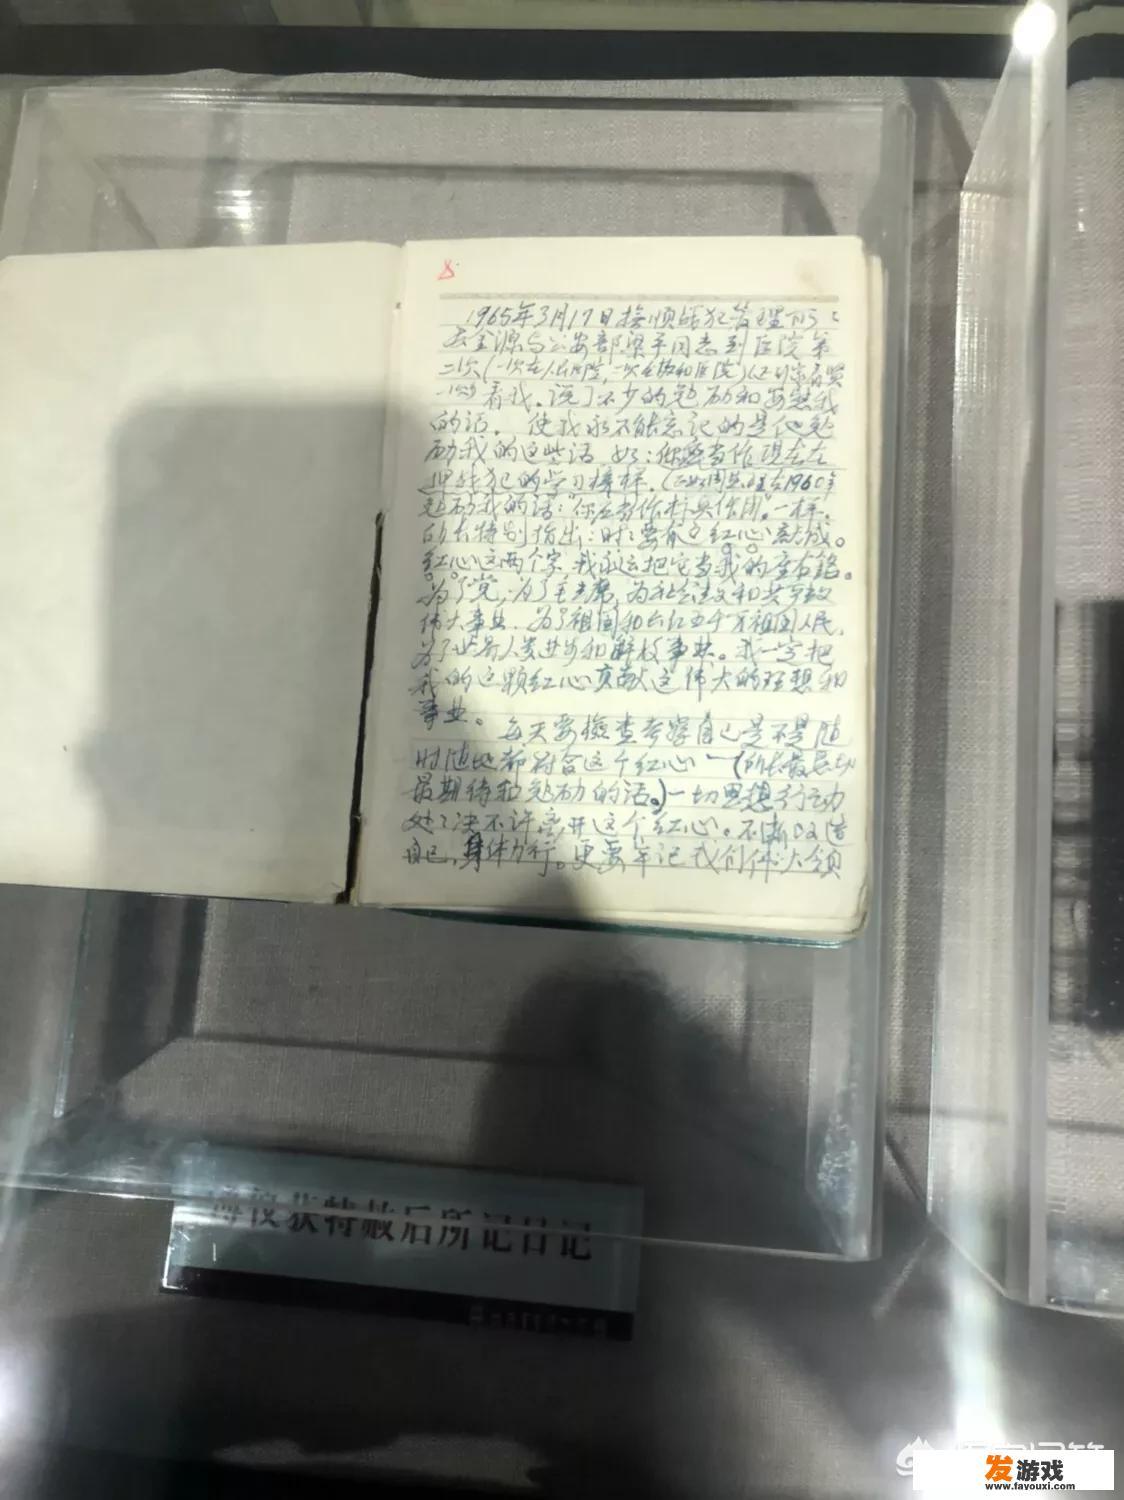 8.
1965年3月17日抚顺战犯管理所
金源与公安部梁平同志到医院第
二次(一次在人民医院,一次在协和医院)
看我。说了不少的勉励和安慰我
的话。 使我永不能忘记的是他勉
励我的这些话 如:你要当作现在在
押战犯的学习榜样。(正如周总理在1960年
勉励我的话:“你应当作标兵作用”。一样。
所长特别指出:对 要有这红心 就成。
红心这两个字 我永远把它当我的座右铭。
为了党,为了毛主席,为社会主义和共产的
伟大事业,为了祖国和六亿五千万祖国人民,
为了世界人类进步和解放事业。我一定把
我的这颗红心贡献这伟大的理想和
事业。 每天要检查考察自己是不是随
时随地都符合这个红心—(所长最
最期待和勉励的话。)一切思想行动
处处决不许离开这个红心。不断改造
自己,身体力行。更要牢记我们伟大领
溥仪获特赦后所记日记
发游戏
www.fayouxi.com